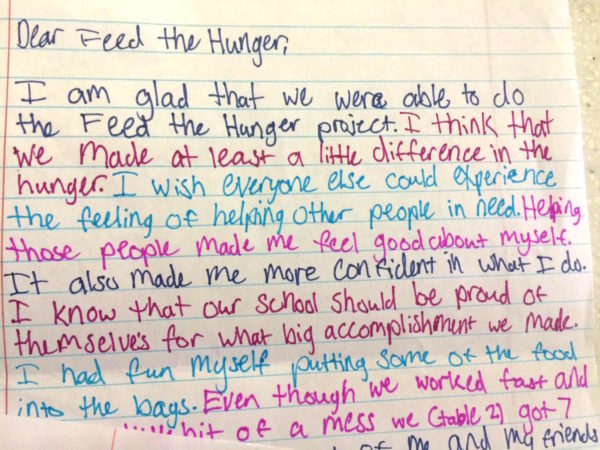 Dear Feed the Hunger,
I am glad that we were able to do
the Feed the Hunger project. I think that
we made at least a little difference in the
hunger. I wish everyone else could experience
the feeling of helping other people in need. Helping
those people made me feel good about myself.
It also made me more confident in what I do.
I know that our school should be proud of
themselve's for what big accomplishment we made.
I had fun myself putting some of the food
into the bags. Even though we worked fast and
bit of a mess we (table 2) got 7
of me and my friends